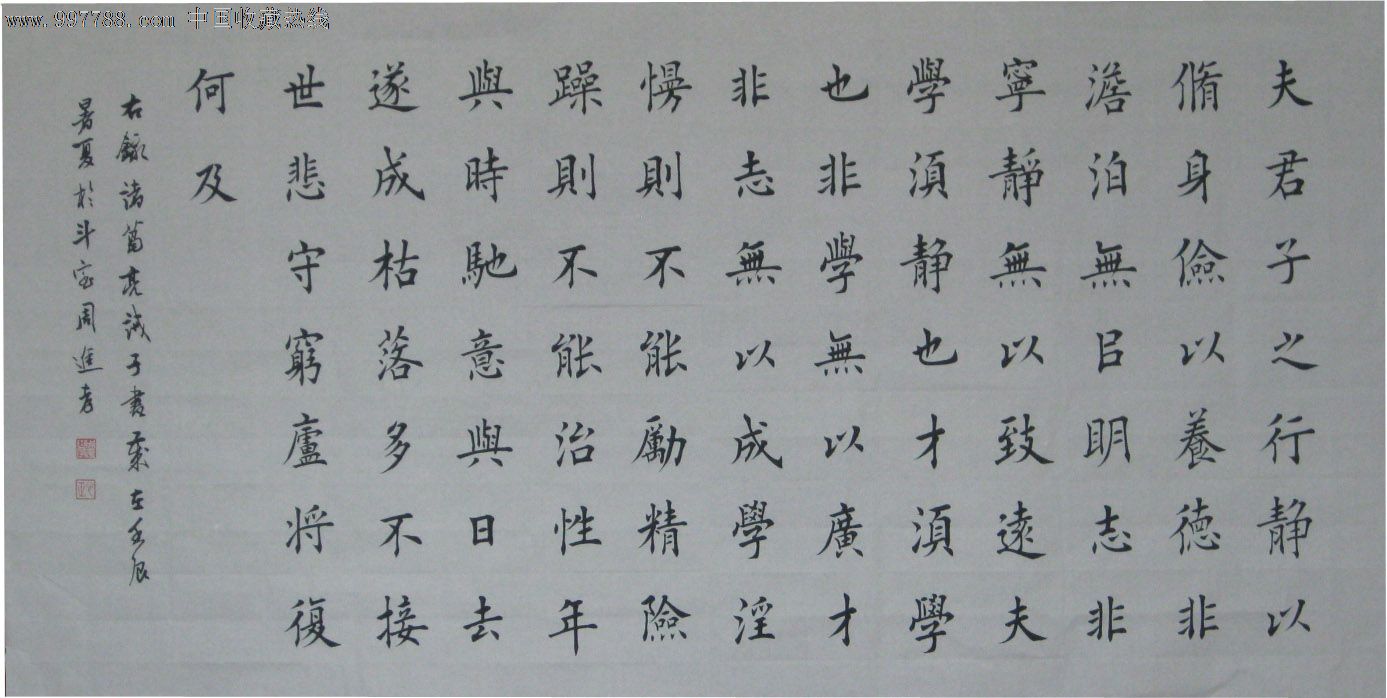 www.997788.com 中国收藏热线
夫君子之行静以
脩身儉以養德非
澹泊無㠯明志非
寧靜無以致遠夫
學須静也才須學
也非學無以廣才
非志無以成學淫
慢則不能勵精險
躁則不能治性年
與時馳意與日去
遂成枯落多不接
世悲守窮廬将復
何及
右錄諸葛亮誡子書歲在壬辰
暑夏於斗室周進孝